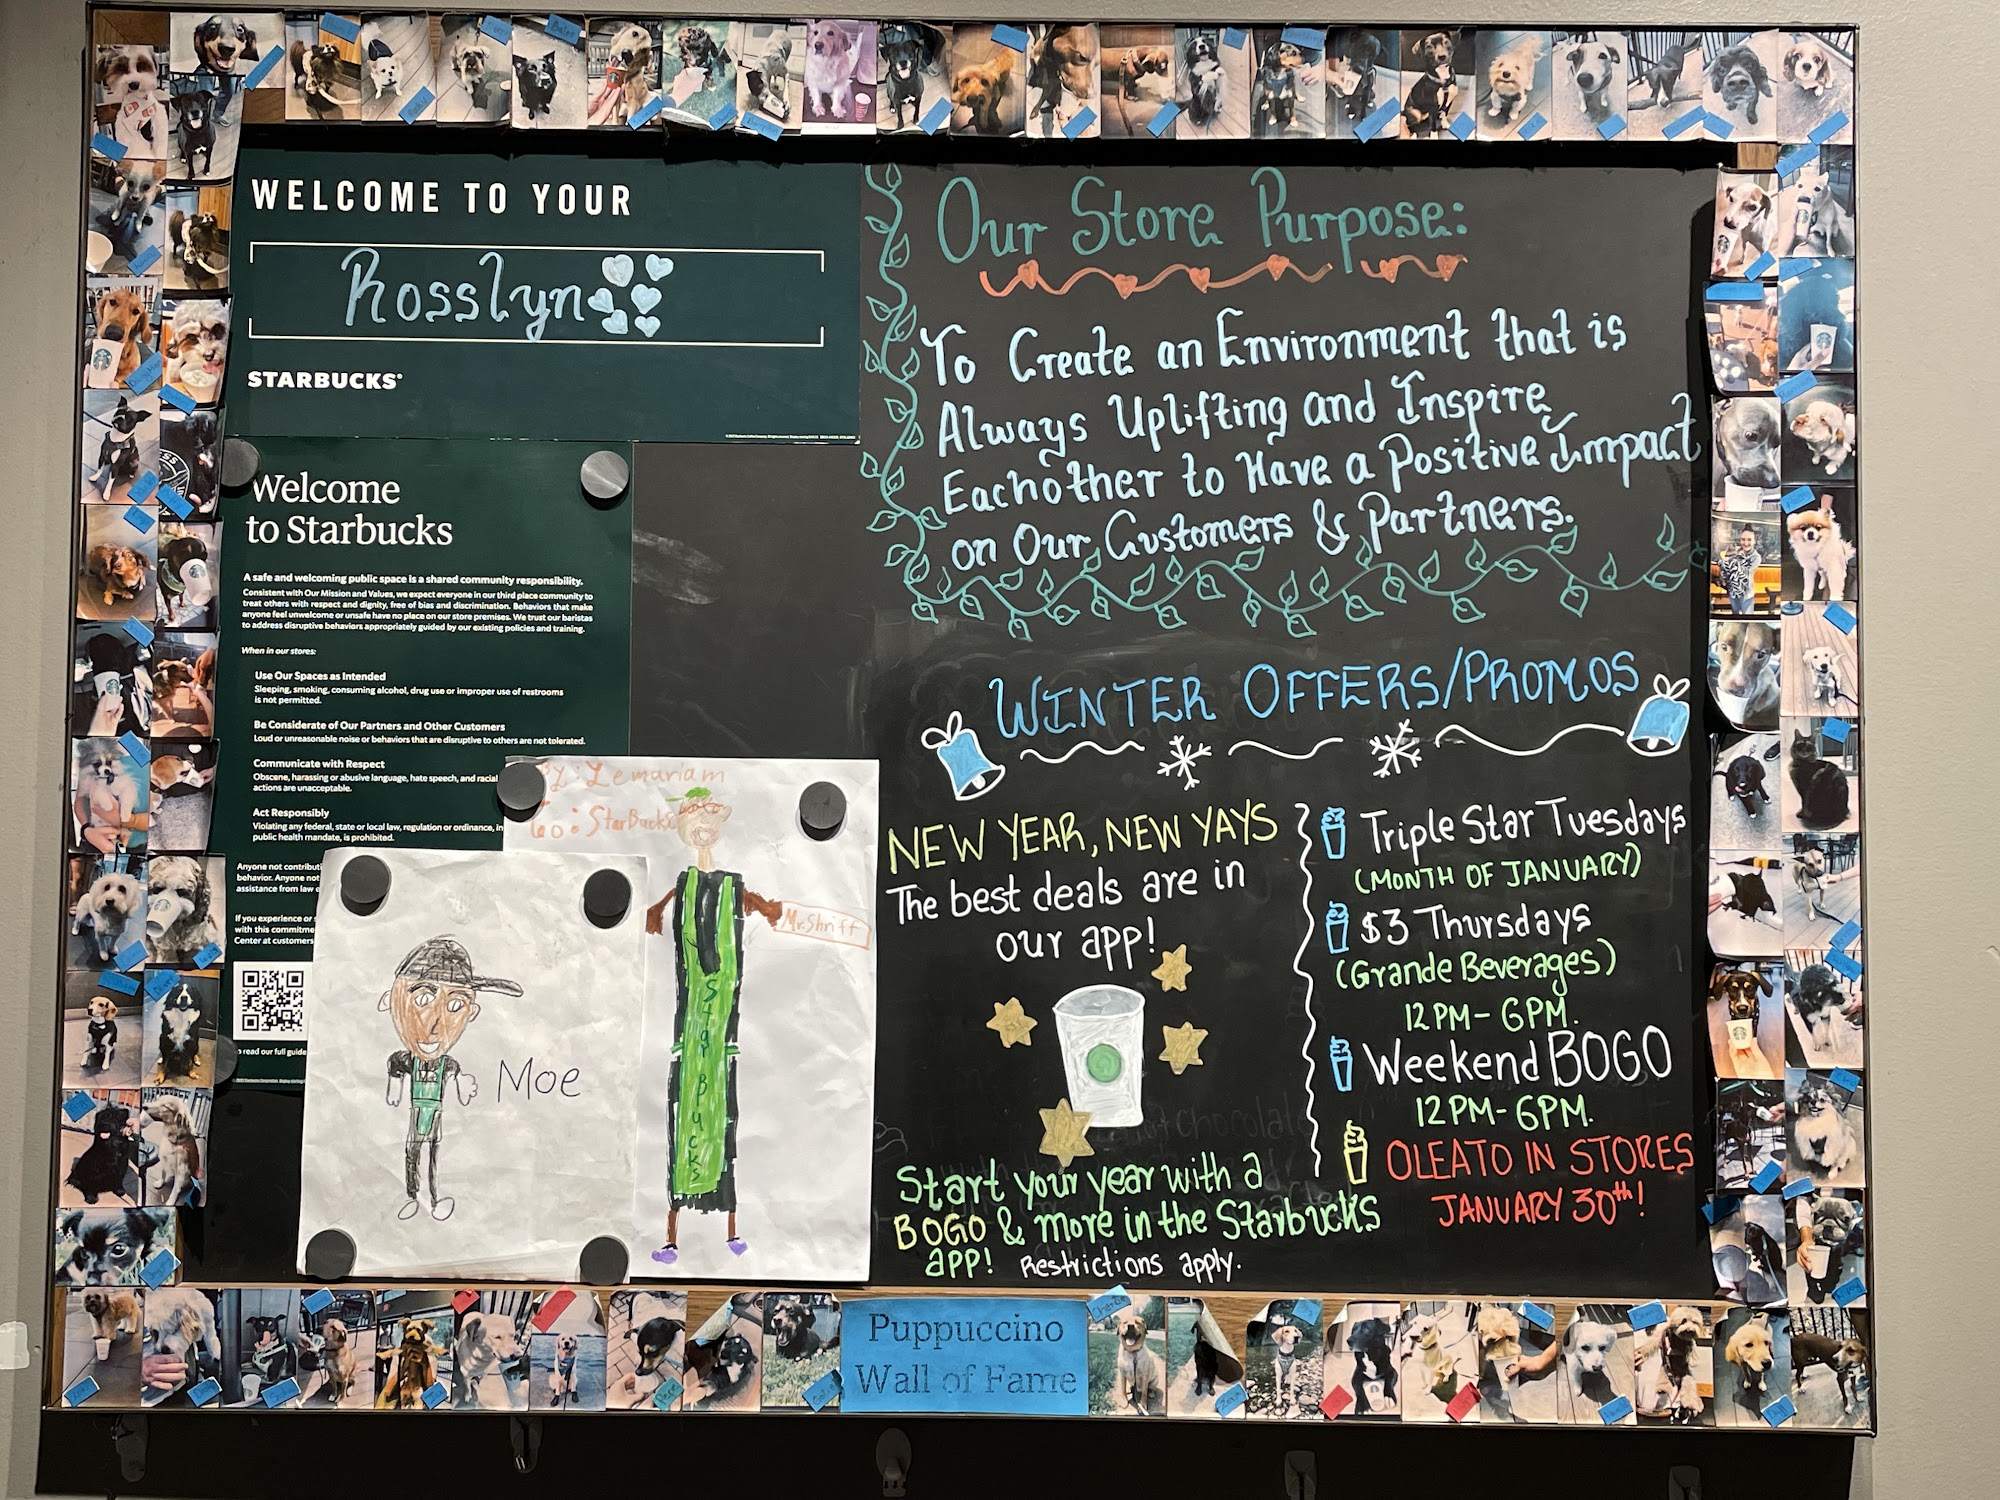 WELCOME TO YOUR
Rosslyn
STARBUCKS®
Welcome
to Starbucks
A safe and welcoming public space is a shared community responsibility.
Consistent with Our Mission and Values, we expect everyone in our third place community to
treat others with respect and dignity, free of bias and discrimination. Behaviors that make
anyone feel unwelcome or unsafe have no place on our store premises. We trust our baristas
to address disruptive behaviors appropriately guided by our existing policies and training.
When in our stores:
Use Our Spaces as Intended
Sleeping, smoking, consuming alcohol, drug use or improper use of restrooms
is not permitted.
Be Considerate of Our Partners and Other Customers
Loud or unreasonable noise or behaviors that are disruptive to others are not tolerated.
Communicate with Respect
Obscene, harassing or abusive language, hate speech, and racial
actions are unacceptable.
Act Responsibly
Violating any federal, state or local law, regulation or ordinance, in
public health mandate, is prohibited.
Anyone not contributi
behavior. Anyone not
assistance from law e
If you experience or
with this commitme
Center at customers
o read our full guide
By: Lemariam
To: StarBucks
Mr.Shriff
Star Bucks
Moe
Our Store Purpose:
To Create an Environment that is
Always Uplifting and Inspire
Eachother to Have a Positive Impact
on Our Customers & Partners.
WINTER OFFERS/PROMOS
NEW YEAR, NEW YAYS
The best deals are in
our app!
Start your year with a
BOGO & more in the Starbucks
app! Restrictions apply.
Triple Star Tuesdays
(MONTH OF JANUARY)
$3 Thursdays
(Grande Beverages)
12PM-6PM.
Weekend BOGO
12PM-6PM.
OLEATO IN STORES
JANUARY 30th!
Puppuccino
Wall of Fame